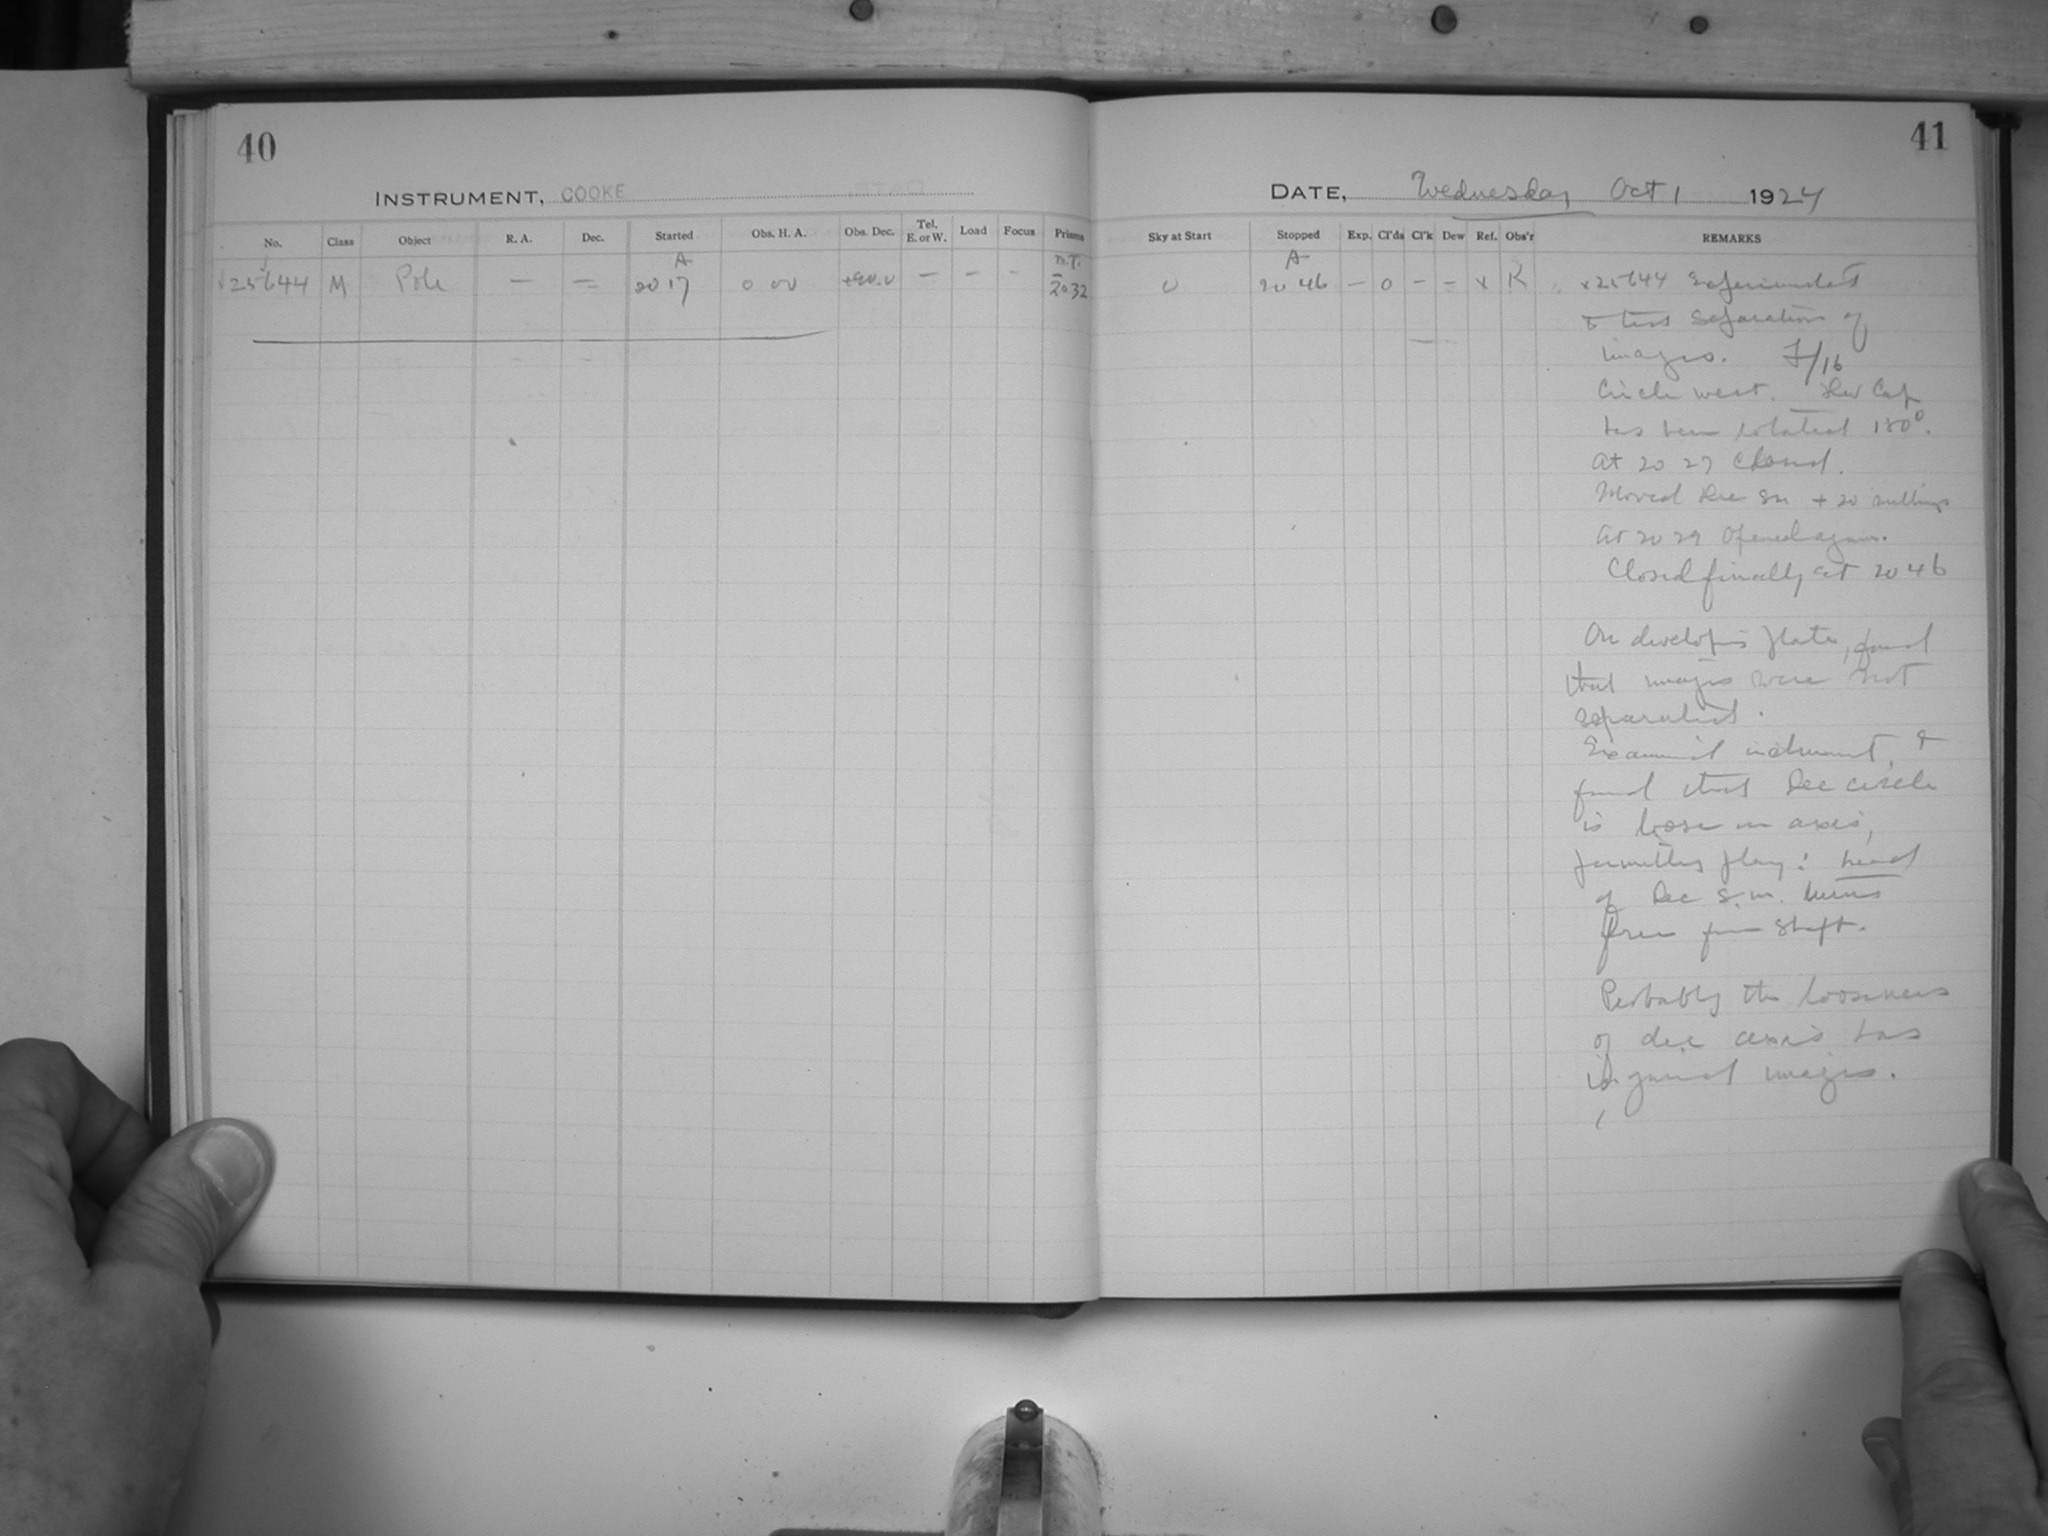 40
INSTRUMENT, COOKE
No. Class Object R. A. Dec. Started Obs. H. A. Obs. Dec. Tel. E. or W. Load Focus Prisms
A m.T.
25644 M Pole — — 20 17 0 00 +90.0 — — - 2032
41
DATE, Wednesday Oct 1 1924
Sky at Start Stopped Exp. Cl'ds Cl'k Dew Ref. Obs'r REMARKS
A
0 20 46 — 0 — — x K x25644 Experimental
to test separation of
images. F/16
Circle west. Dew Cap
has been rotated 180°.
At 20 27 Closed.
Moved Dec Sm + 20
At 20 29 opened again.
Closed finally at 20 46
On developing plate, found
that images were not
separated.
Examined instrument, &
found that Dec circle
is loose on axis,
permitting play: head
of Dec S.m. turns
free from shaft.
Probably the looseness
of dec axis has
images.